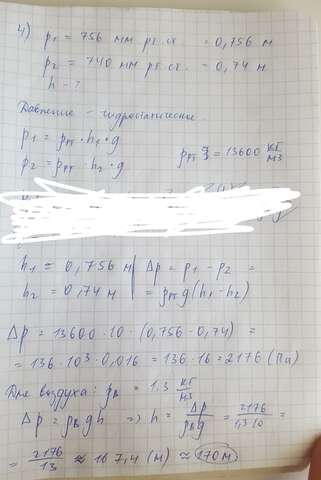 4) p1 = 756 мм рт. ст. = 0,756 м
p2 = 740 мм рт. ст. = 0,74 м
h - ?
Давление - гидростатическое.
p1 = ρрт · h1 · g
ρрт = 13600 кг/м3
p2 = ρрт · h2 · g
h1 = 0,756 м | Δp = p1 - p2 =
h2 = 0,74 м | = ρрт g (h1 - h2)
Δp = 13600 · 10 · (0,756 - 0,74) =
= 136 · 10³ · 0,016 = 136 · 16 = 2176 (Па)
Для воздуха: ρв = 1,3 кг/м3
Δp = ρв g h => h = Δp/ρв g = 2176/1,3·10 =
= 2176/13 ≈ 167,4 (м) ≈ 170 м